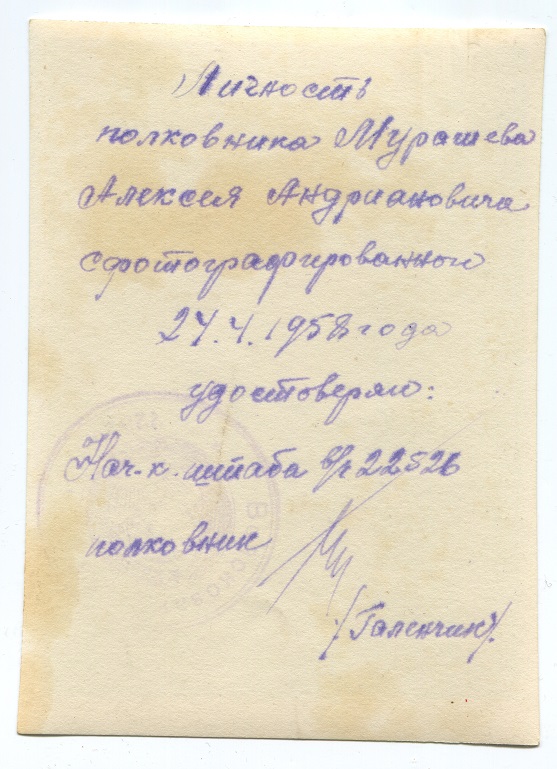 Личность
полковника Мурашева
Алексея Андриановича
сфотографированного
24.4.1958 года
удостоверяю:
Нач-к. штаба в/ч 22526
полковник
/Галенчик/.